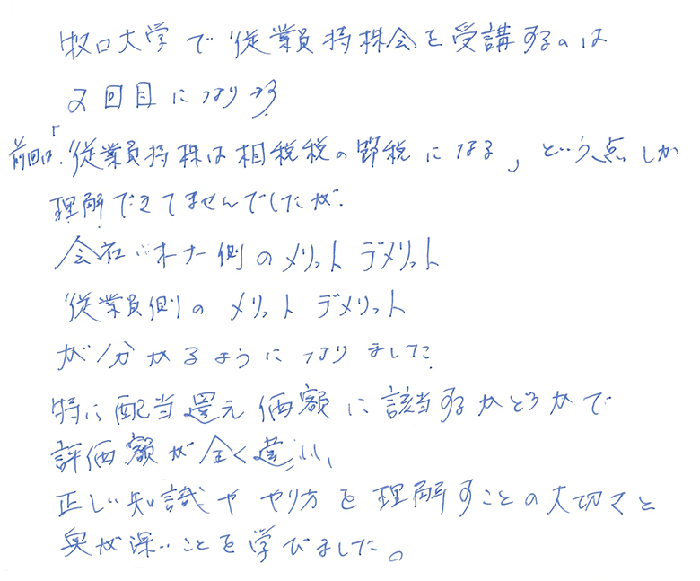 牧口大学で従業員持株会を受講するのは
2回目になります
前回は「従業員持株は相続税の節税になる」という点しか
理解できてませんでしたが、
会社オーナー側のメリットデメリット
従業員側のメリットデメリット
が分かるようになりました。
特に配当還元価額に該当するかどうかで
評価額が全く違い、
正しい知識ややり方を理解することの大切さと
奥が深いことを学びました。